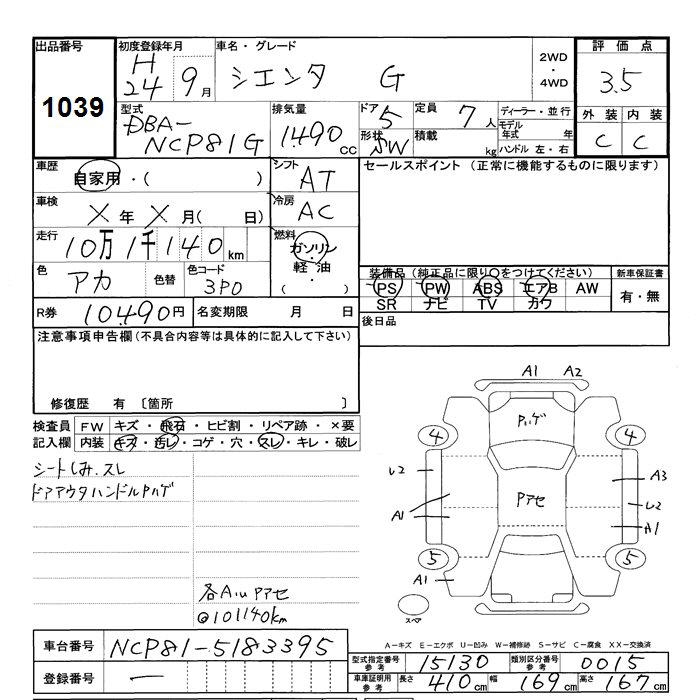 出品番号 初度登録年月 車名・グレード 2WD・4WD 評価点
1039 H24 9月 シエンタ G 3.5
型式 排気量 ドア 5 定員 7人 ディーラー・並行 外装 内装
DBA-NCP81G 1490cc 形状 SW 積載 kg モデル年式 年 C C
ハンドル 左・右
車歴 自家用・( ) シフト AT セールスポイント(正常に機能するものに限ります)
車検 X年X月( 日) 冷房 AC
走行 10万1千140km 燃料 ガソリン・軽油・( )
色 アカ 色替 色コード 3P0 装備品(純正品に限り○をつけてください) 新車保証書
PS PW ABS エアB AW 有・無
SR ナビ TV カワ
R券 10,490円 名変期限 月 日 後日品
注意事項申告欄(不具合内容等は具体的に記入して下さい)
修復歴 有〔箇所 〕
検査員記入欄 FW キズ・飛石・ヒビ割・リペア跡・×要
内装 キズ・汚レ・コゲ・穴・スレ・キレ・破レ
シートしみ.スレ
ドアアウタハンドルPハゲ
各A.u Pアセ
◎101140km
A1 A2
Pハゲ
4 4
L2 A3
Pアセ
L2
A1 A1
5 5
A1
スペア
A-キズ E-エクボ U-凹み W-補修跡 S-サビ C-腐食 XX-交換済
車台番号 NCP81-5183395
型式指定番号 参考 15130 類別区分番号 参考 0015
登録番号 ー
車庫証明用 参考 長さ 410cm 幅 169cm 高さ 167cm